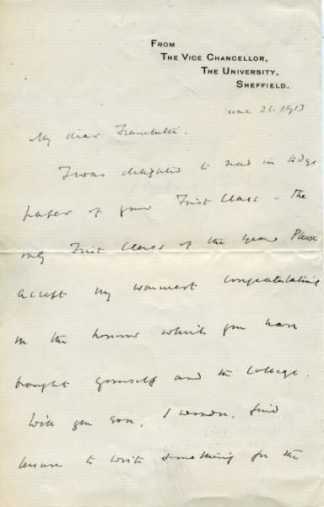 FROM
THE VICE CHANCELLOR,
THE UNIVERSITY,
SHEFFIELD.
June 21. 1913
My dear
I was delighted to read in
paper of your First Class – the
only First Class of the year. Please
accept my warmest congratulations
on the honour which you have
brought yourself and the College.
Will you ever, I wonder, find
leisure to write something for the